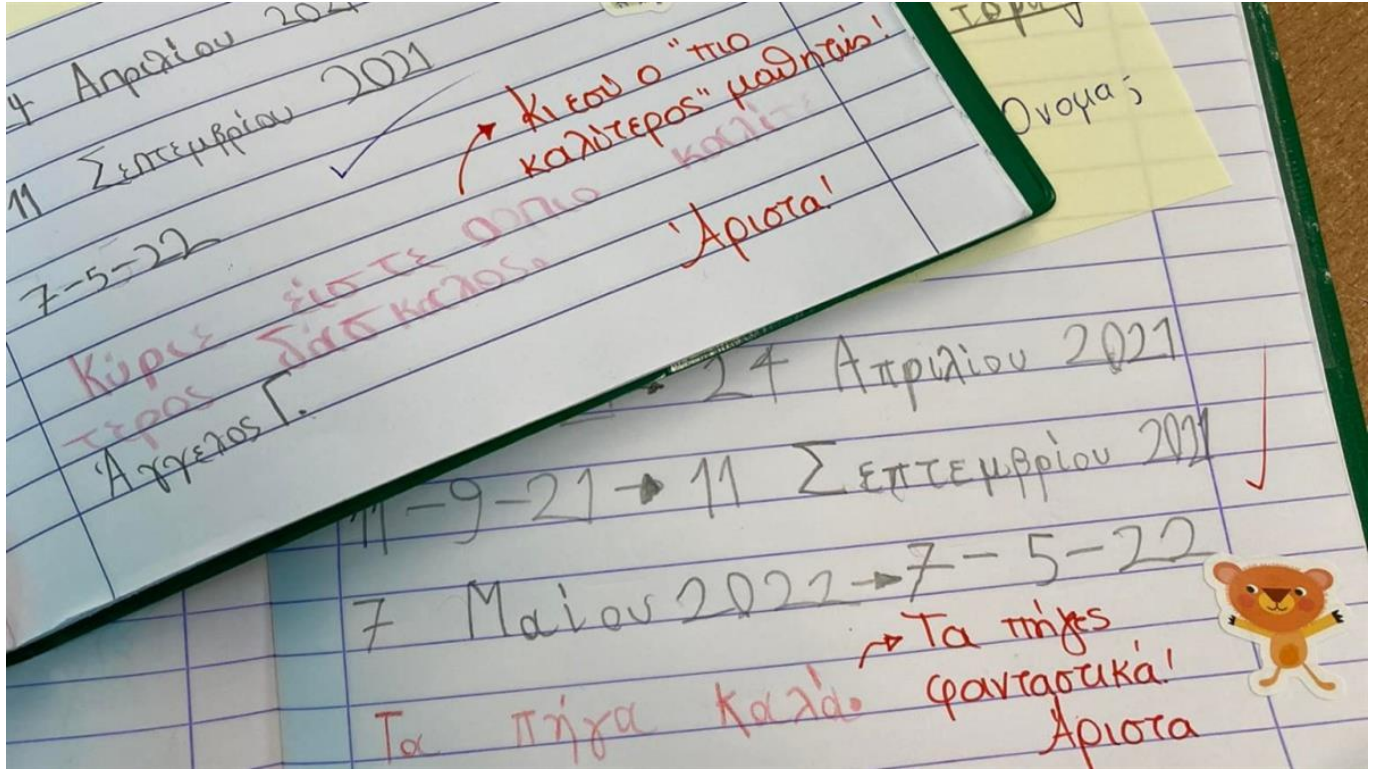 4 Απριλίου 202
11 Σεπτεμβρίου 2021
7-5-22
Κι εσύ ο "πιο
καλύτερος" μαθητής!
Κύριε είστε ο πιο καλίτε
τερος δάσκαλος.
Άριστα!
Άγγελος Γ.
Όνομα;
24 Απριλίου 2021
11-9-21→11 Σεπτεμβρίου 2021
7 Μαΐου 2022→7-5-22
Τα πήγα καλά.
Τα πήγες
φανταστικά!
Άριστα